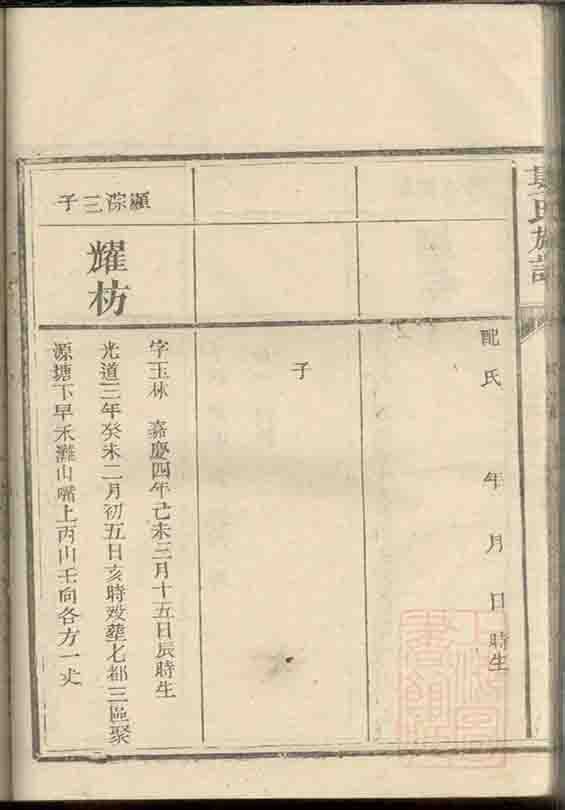 氏族譜
配氏 年 月 日時生
子
顯淙三子
耀枋
字玉林 嘉慶四年己未三月十五日辰時生
光道三年癸未二月初五日亥時歿葬七都三區聚
源塘下早禾灘山嘴上丙山壬向各方一丈